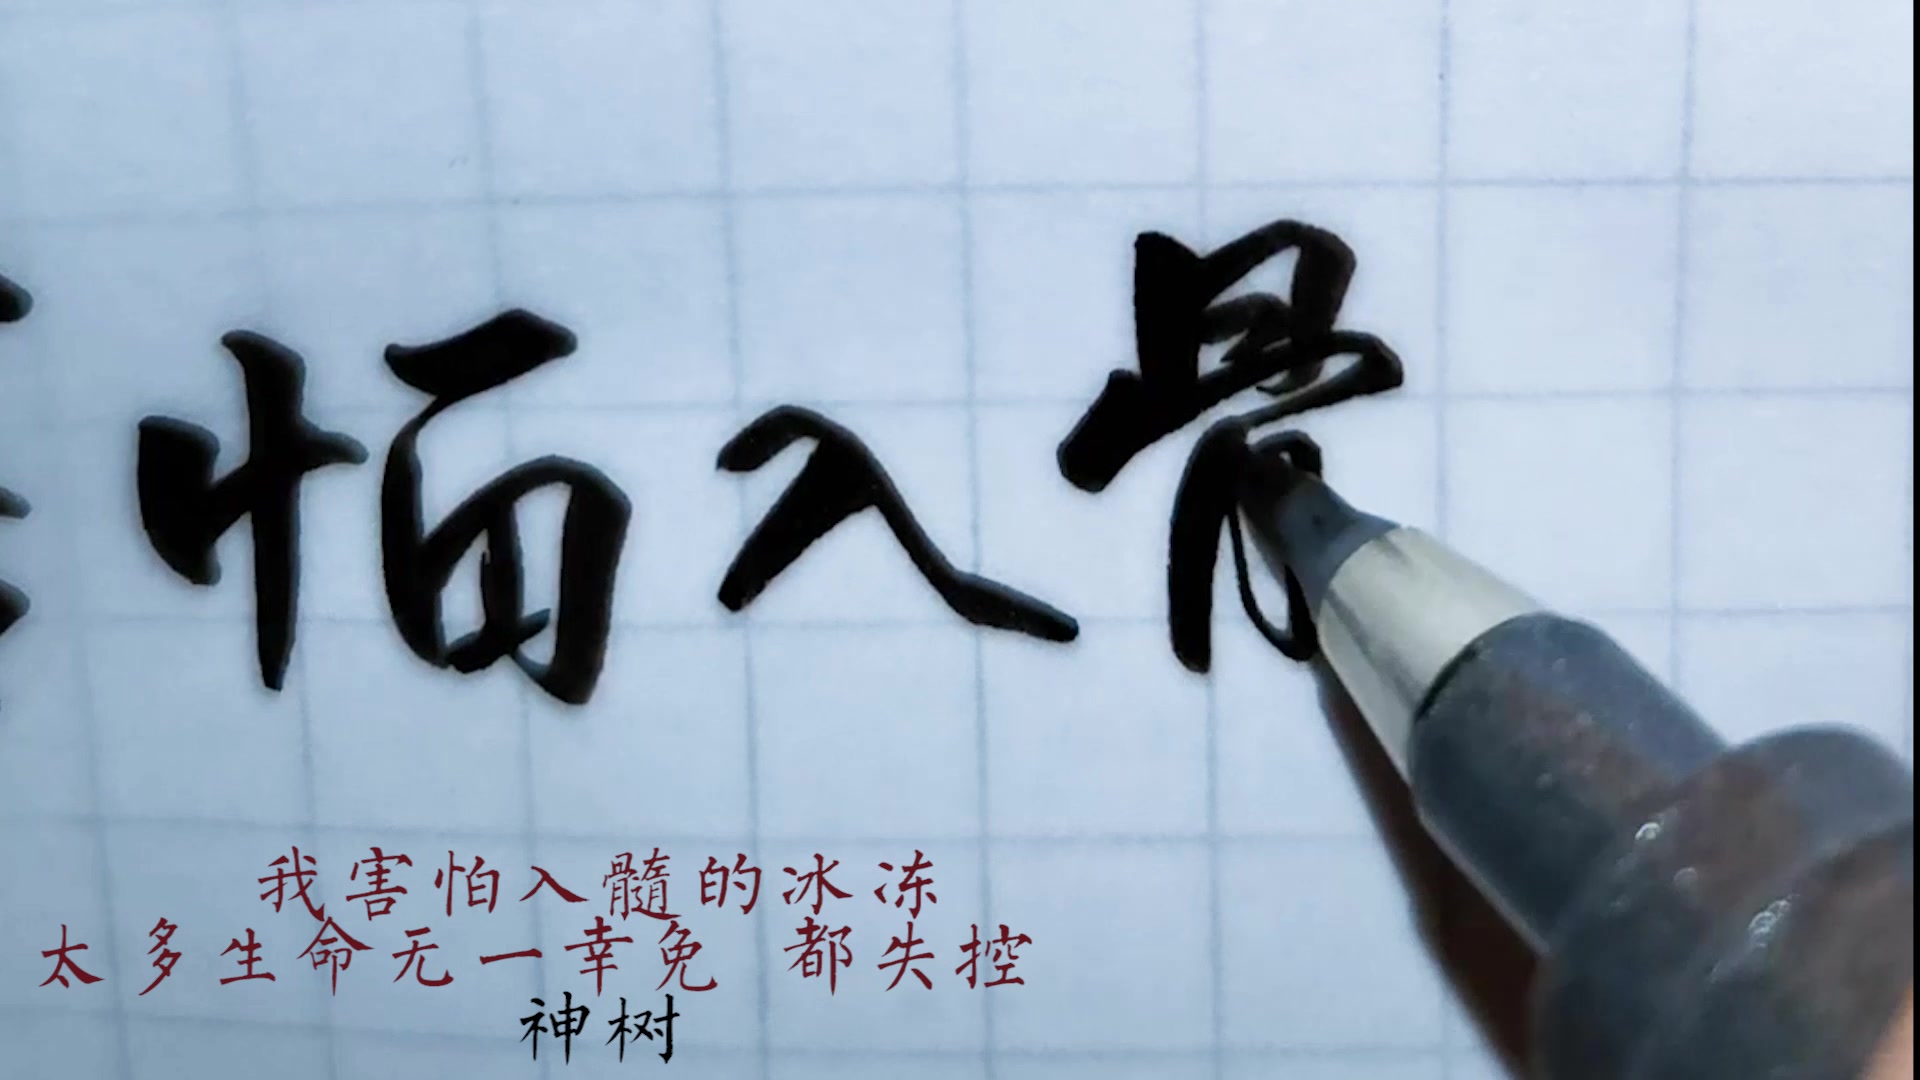 怕入骨
我害怕入髓的冰冻
太多生命无一幸免 都失控
神树